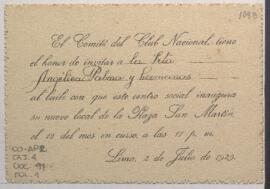 1098
El Comité del Club Nacional, tiene
el honor de invitar a la Srta
Angélica Palma y
al baile con que este centro social inaugura
su nuevo local de la Plaza San Martín,
el 12 del mes en curso, a las 11 p. m.
Lima, 2 de Julio de 1929.
CO-AP2
CAJ. 2
DOC.
FOL. 1